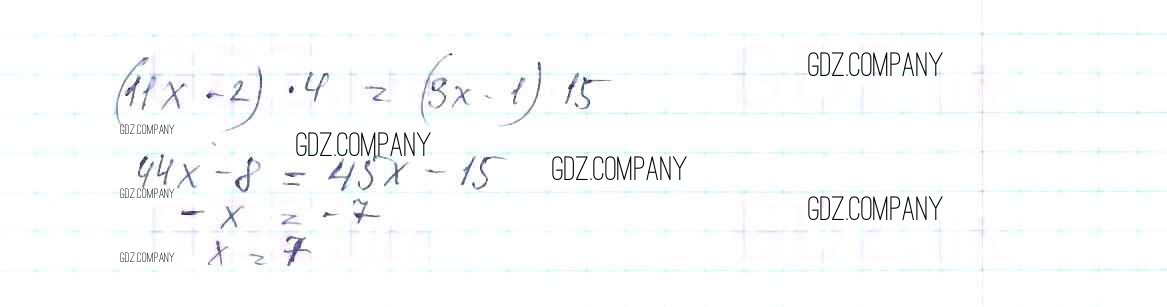 (11x - 2) · 4 = (3x - 1) 15
GDZ.COMPANY
GDZ.COMPANY
GDZ.COMPANY
44x - 8 = 45x - 15
GDZ.COMPANY
GDZ.COMPANY
- x = - 7
GDZ.COMPANY
x = 7
GDZ.COMPANY